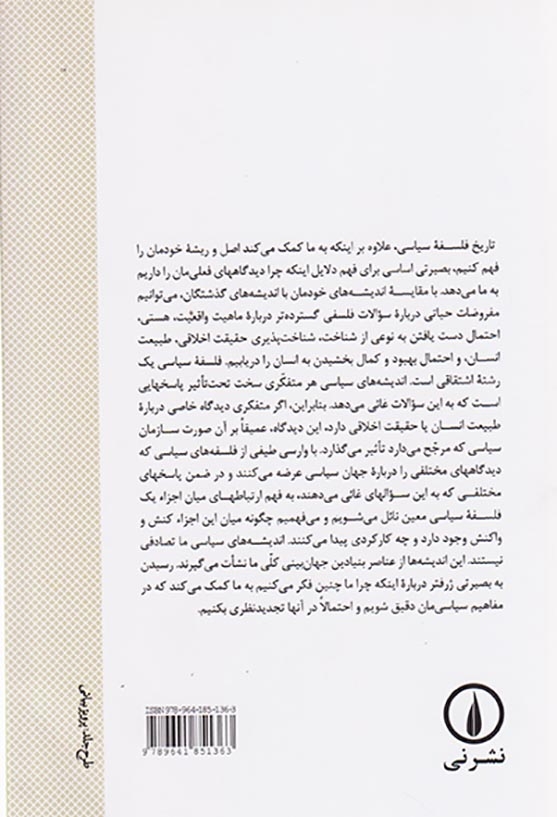 تاریخ فلسفهٔ سیاسی، علاوه بر اینکه به ما کمک می‌کند اصل و ریشهٔ خودمان را
فهم کنیم، بصیرتی اساسی برای فهم دلایل اینکه چرا دیدگاههای فعلی‌مان را داریم
به ما می‌دهد. با مقایسهٔ اندیشه‌های خودمان با اندیشه‌های گذشتگان، می‌توانیم
مفروضات حیاتی دربارهٔ سؤالات فلسفی گسترده‌تر دربارهٔ ماهیت واقعیّت، هستی،
احتمال دست یافتن به نوعی از شناخت، شناخت‌پذیری حقیقت اخلاقی، طبیعت
انسان، و احتمال بهبود و کمال بخشیدن به انسان را دریابیم. فلسفهٔ سیاسی یک
رشتهٔ اشتقاقی است. اندیشه‌های سیاسی هر متفکّری سخت تحت‌تأثیر پاسخهایی
است که به این سؤالات غائی می‌دهد. بنابراین، اگر متفکری دیدگاه خاصی دربارهٔ
طبیعت انسان یا حقیقت اخلاقی دارد، این دیدگاه، عمیقاً بر آن صورت سازمان
سیاسی که مرجّح می‌دارد تأثیر می‌گذارد. با وارسی طیفی از فلسفه‌های سیاسی که
دیدگاههای مختلفی را دربارهٔ جهان سیاسی عرضه می‌کنند و در ضمن پاسخهای
مختلفی که به این سؤالهای غائی می‌دهند، به فهم ارتباطهای میان اجزاء یک
فلسفهٔ سیاسی معین نائل می‌شویم و می‌فهمیم چگونه میان این اجزاء کنش و
واکنش وجود دارد و چه کارکردی پیدا می‌کنند. اندیشه‌های سیاسی ما تصادفی
نیستند. این اندیشه‌ها از عناصر بنیادین جهان‌بینی کلّی ما نشأت می‌گیرند. رسیدن
به بصیرتی ژرفتر دربارهٔ اینکه چرا ما چنین فکر می‌کنیم به ما کمک می‌کند که در
مفاهیم سیاسی‌مان دقیق شویم و احتمالاً در آنها تجدیدنظری بکنیم.
طرح جلد: پرویز بیانی
ISBN 978-964-185-136-3
9 789641 851363
نشر نی